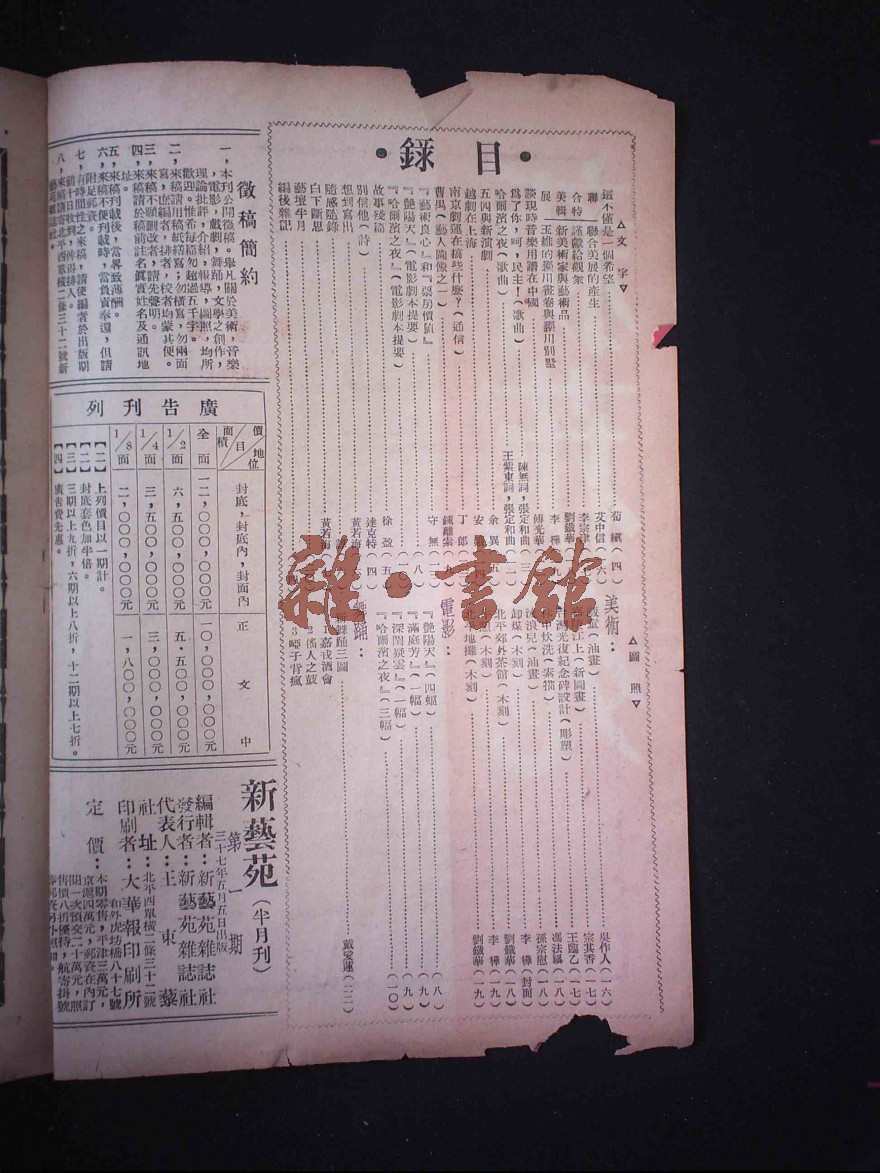 目錄
△文字▽
這不僅是一個希望
荀
聯合美展特輯
聯合美展的產生
艾中信
謹獻給觀衆
李宗津
新美術家與藝術品
劉鐵華
王維的輞川畫卷與輞川別墅
李樺
談現時音樂用譜在中國
傅光華
爲了你，呵，民主！（歌曲）
陳無詞，張定和曲
哈爾濱之夜（歌曲）
王紫東詞，張定和曲
五四與新演劇
余異
越劇在上海
安
南京劇運在搞些什麼？（通信）
丁郎
曹禺（藝人圖像之一）
鍾離索
『藝術良心』和『票房價值』
守無
『艷陽天』（電影劇本提要）
（八）
『哈爾濱之夜』（電影劇本提要）
（一〇）
故事殘篇
徐盈
別信他（詩）
達克特（四）
想到寫出
黃若海
隨感隨錄
白下斷思
黃若海
藝壇半月
編後雜記
△圖照▽
美術：
（油畫）
吳作人（一六）
江上（新圖畫）
宗其香（一七）
光復紀念碑設計（彫塑）
王臨乙（一七）
休中炊洗（素描）
馮法禩（一八）
流浪兒（油畫）
孫宗慰（一八）
卸煤（木刻）
李樺（封面）
北平郊外茶館（木刻）
劉鐵華（一八）
（木刻）
李樺（一九）
地攤（木刻）
劉鐵華（一九）
電影：
『艷陽天』（四幅）
（八）
『滿庭芳』（一幅）
（九）
『深閨疑雲』（一幅）
（九）
『哈爾濱之夜』（三幅）
（一〇）
舞踊：
新舞踊三圖
戴愛蓮（二二）
1 嘉戎酒會
2 傜人之鼓
3 啞子背瘋
徵稿簡約
一，本刊公開徵稿。舉凡關於美術，音樂
，電影，戲劇，舞踊，文學之創作，
理論批評，介紹，報導，圖照，均所
歡迎。惟希每篇勿超過五千字。
二，來稿請用稿紙繕寫；勿橫寫，勿兩面
寫，庶編者，排者，校者均蒙其便。
三，來稿不願刪改者，請先聲明。
四，來稿請於稿前註名眞實姓名及通訊地
址。
五，來稿刊載後，當畧致薄酬。
六，來稿不便刊載時，當負責奉還，但請
附足郵資。
七，有時間性之來稿，請使編者於出版期
前十日收到，俾得排入。
八，來稿請寄北平西單橫二條三十二號新
藝苑雜誌社。
廣告刊列
價目 地位 面積
封底，封底內，封面內
正文中
全面
一二，〇〇〇，〇〇〇元
一〇，〇〇〇，〇〇〇元
1/2面
六，五〇〇，〇〇〇元
五，五〇〇，〇〇〇元
1/4面
三，五〇〇，〇〇〇元
三，〇〇〇，〇〇〇元
1/8面
二，〇〇〇，〇〇〇元
一，八〇〇，〇〇〇元
上列價目以一期計。
【二】封底套色加半倍。
【三】三期以上九折，六期以上八折，十二期以上七折。
【四】廣告費先惠。
新藝苑（半月刊）
第一期
三十七年五月五日出版
編輯者：新藝苑雜誌社
發行者：新藝苑雜誌社
代表人：王東蓀
社址：北平西單橫二條三十二號
印刷者：大華報印刷所
和外虎坊橋八十七號
定價：本期零售，平津三萬元，
京滬四萬元，郵資在內訂
閱一次預交二十萬元，照
售價八折優待，航寄掛號
雜·書館